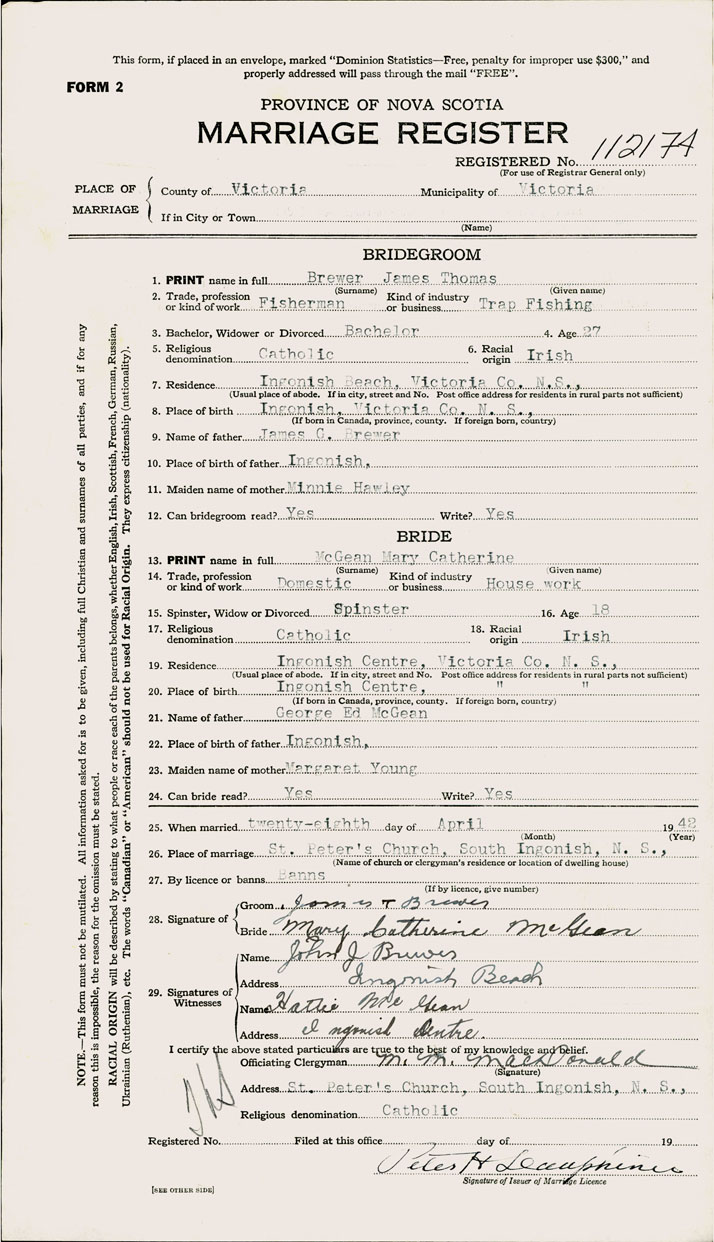 This form, if placed in an envelope, marked "Dominion Statistics—Free, penalty for improper use $300," and
properly addressed will pass through the mail "FREE".
FORM 2
PROVINCE OF NOVA SCOTIA
MARRIAGE REGISTER
REGISTERED No. 112174
(For use of Registrar General only)
PLACE OF MARRIAGE
County of Victoria Municipality of Victoria
If in City or Town
(Name)
BRIDEGROOM
1. PRINT name in full Brewer James Thomas
(Surname) (Given name)
2. Trade, profession or kind of work Fisherman Kind of industry or business Trap Fishing
3. Bachelor, Widower or Divorced Bachelor 4. Age 27
5. Religious denomination Catholic 6. Racial origin Irish
7. Residence Ingonish Beach, Victoria Co. N.S.,
(Usual place of abode. If in city, street and No. Post office address for residents in rural parts not sufficient)
8. Place of birth Ingonish, Victoria Co. N. S.,
(If born in Canada, province, county. If foreign born, country)
9. Name of father James G. Brewer
10. Place of birth of father Ingonish,
11. Maiden name of mother Minnie Hawley
12. Can bridegroom read? Yes Write? Yes
BRIDE
13. PRINT name in full McGean Mary Catherine
(Surname) (Given name)
14. Trade, profession or kind of work Domestic Kind of industry or business House work
15. Spinster, Widow or Divorced Spinster 16. Age 18
17. Religious denomination Catholic 18. Racial origin Irish
19. Residence Ingonish Centre, Victoria Co. N. S.,
(Usual place of abode. If in city, street and No. Post office address for residents in rural parts not sufficient)
20. Place of birth Ingonish Centre, " "
(If born in Canada, province, county. If foreign born, country)
21. Name of father George Ed McGean
22. Place of birth of father Ingonish,
23. Maiden name of mother Margaret Young
24. Can bride read? Yes Write? Yes
25. When married twenty-eighth day of April 1942
(Month) (Year)
26. Place of marriage St. Peter's Church, South Ingonish, N. S.,
(Name of church or clergyman's residence or location of dwelling house)
27. By licence or banns Banns
(If by licence, give number)
28. Signature of
Groom James T Brewer
Bride Mary Catherine McGean
29. Signatures of Witnesses
Name John J Brewer
Address Ingonish Beach
Name Hattie McGean
Address Ingonish Centre.
I certify the above stated particulars are true to the best of my knowledge and belief.
Officiating Clergyman M. M. MacDonald
(Signature)
Address St. Peter's Church, South Ingonish, N. S.,
Religious denomination Catholic
Registered No. Filed at this office day of 19
Peter H Dauphinee
Signature of Issuer of Marriage Licence
[SEE OTHER SIDE]
NOTE.—This form must not be mutilated. All information asked for is to be given, including full Christian and surnames of all parties, and if for any
reason this is impossible, the reason for the omission must be stated.
RACIAL ORIGIN will be described by stating to what people or race each of the parents belongs, whether English, Irish, Scottish, French, German, Russian,
Ukrainian (Ruthenian), etc. The words "Canadian" or "American" should not be used for Racial Origin. They express citizenship (nationality).